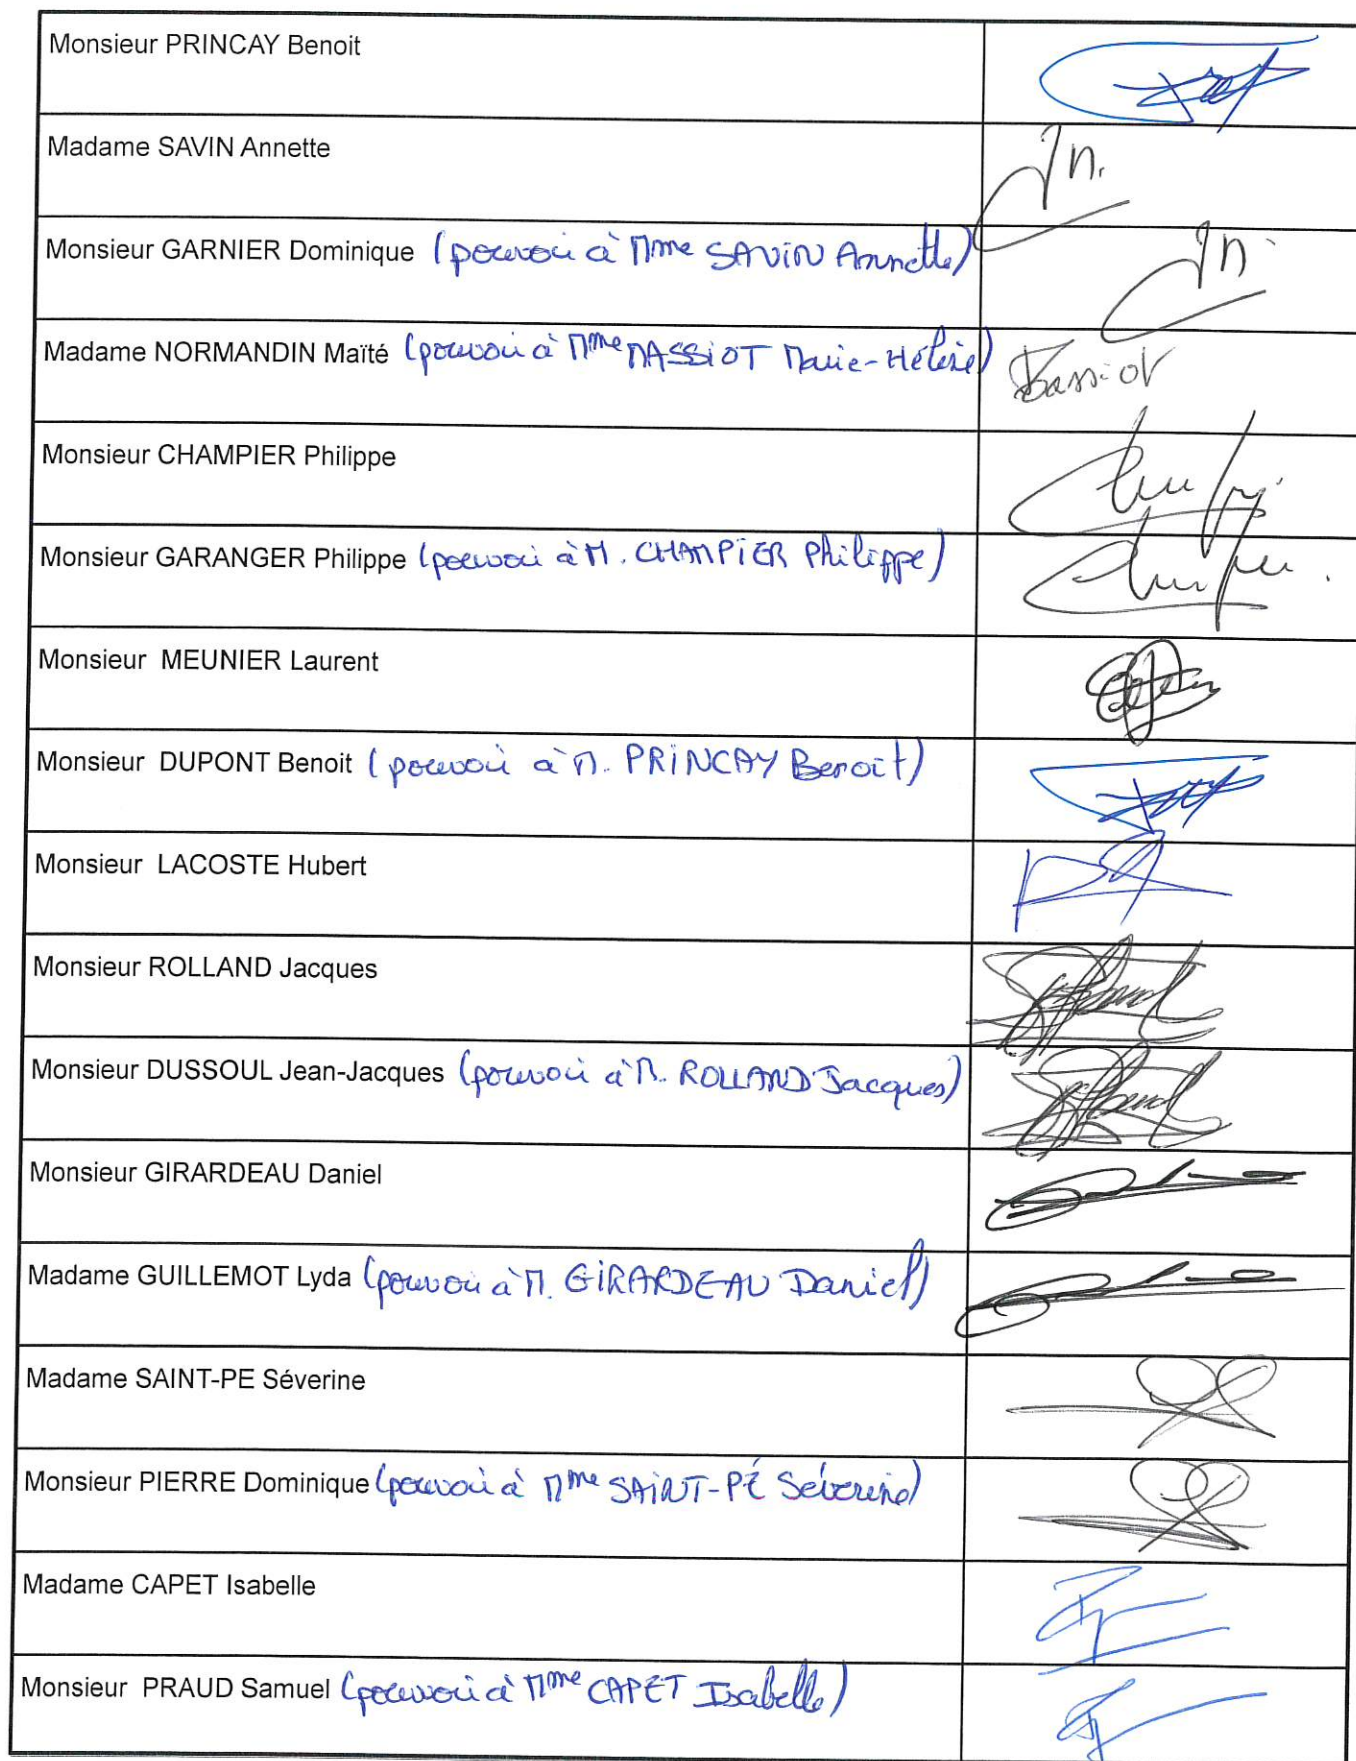 Monsieur PRINCAY Benoit
Madame SAVIN Annette
Monsieur GARNIER Dominique (pouvoir à Mme SAVIN Annette)
Madame NORMANDIN Maïté (pouvoir à Mme MASSIOT Marie-Hélène)
Massiot
Monsieur CHAMPIER Philippe
Monsieur GARANGER Philippe (pouvoir à M. CHAMPIER Philippe)
Monsieur MEUNIER Laurent
Monsieur DUPONT Benoit (pouvoir à M. PRINCAY Benoît)
Monsieur LACOSTE Hubert
Monsieur ROLLAND Jacques
Monsieur DUSSOUL Jean-Jacques (pouvoir à M. ROLLAND Jacques)
Monsieur GIRARDEAU Daniel
Madame GUILLEMOT Lyda (pouvoir à M. GIRARDEAU Daniel)
Madame SAINT-PE Séverine
Monsieur PIERRE Dominique (pouvoir à Mme SAINT-PÉ Séverine)
Madame CAPET Isabelle
Monsieur PRAUD Samuel (pouvoir à Mme CAPET Isabelle)